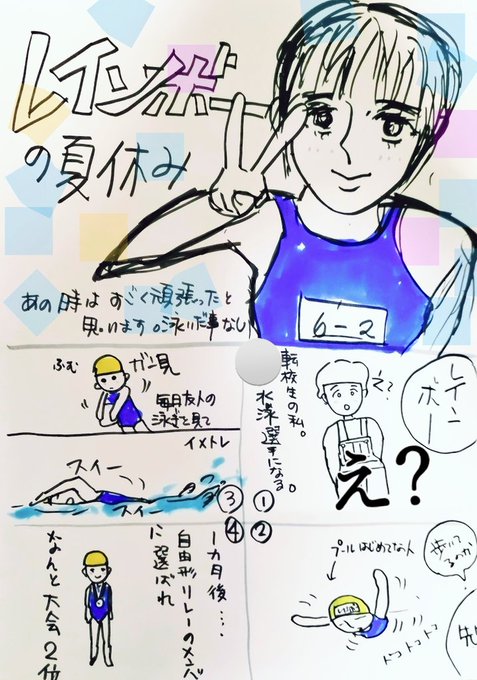 レインボー
の夏休み
あの時はすごく頑張ったと
思います。泳いだ事なし
6-2
①
転校生の私。
水泳選手になる。
え?
え?
レインボー
②
プールはじめてな人
歩いてるのか
先
ドコドコドコ
③
ふむ
ガン見
毎日友人の
泳ぎを見て
イメトレ
スイー
スイー
④
一カ月後…
自由形リレーのメンバ
に選ばれ
なんと大会2位